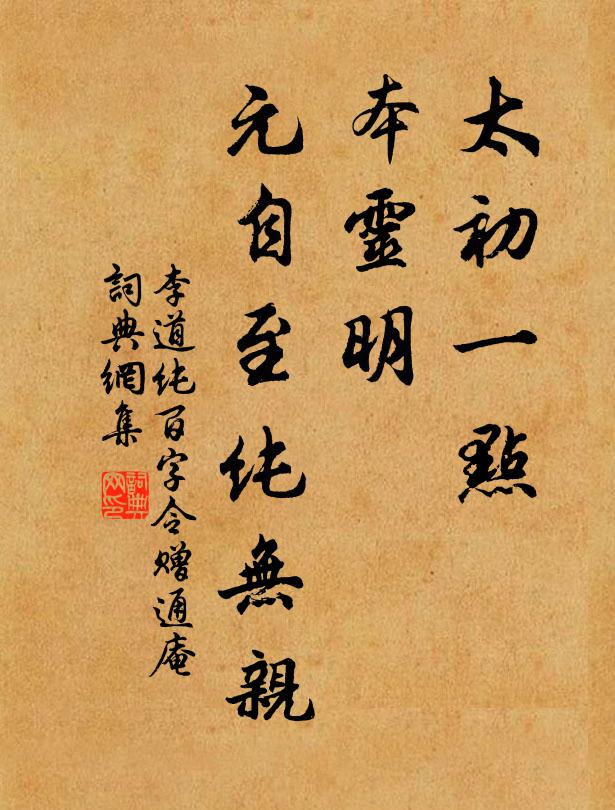 太初一點
本靈明
元自至純無親
李道純百字令贈通庵
詞典網集
詞典
网印